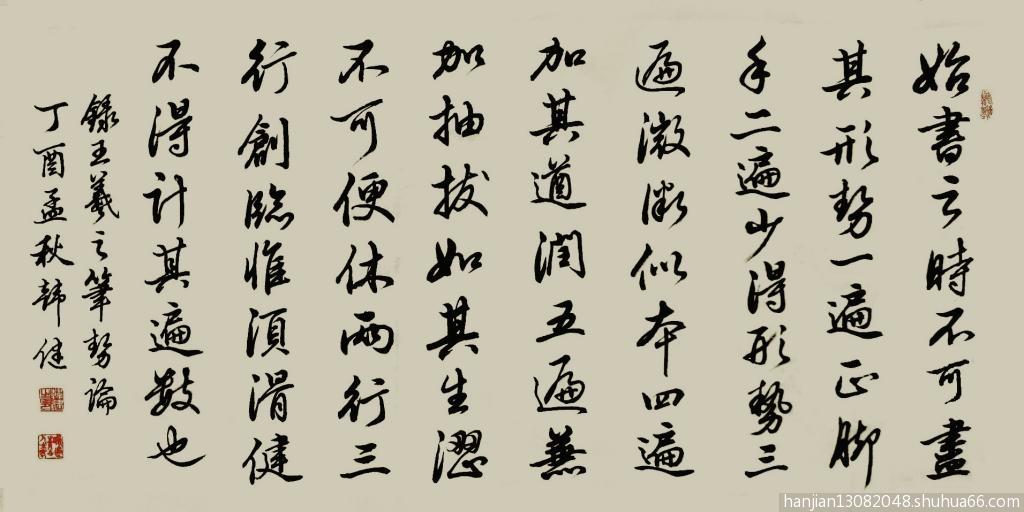 始書之時不可盡
其形勢一遍正脚
手二遍少得形勢三
遍微微似本四遍
加其遒潤五遍兼
加抽拔如其生澀
不可便休兩行三
行創臨惟須滑健
不得計其遍數也
錄王羲之筆勢論
丁酉孟秋韓健
hanjian13082048.shuhua66.com